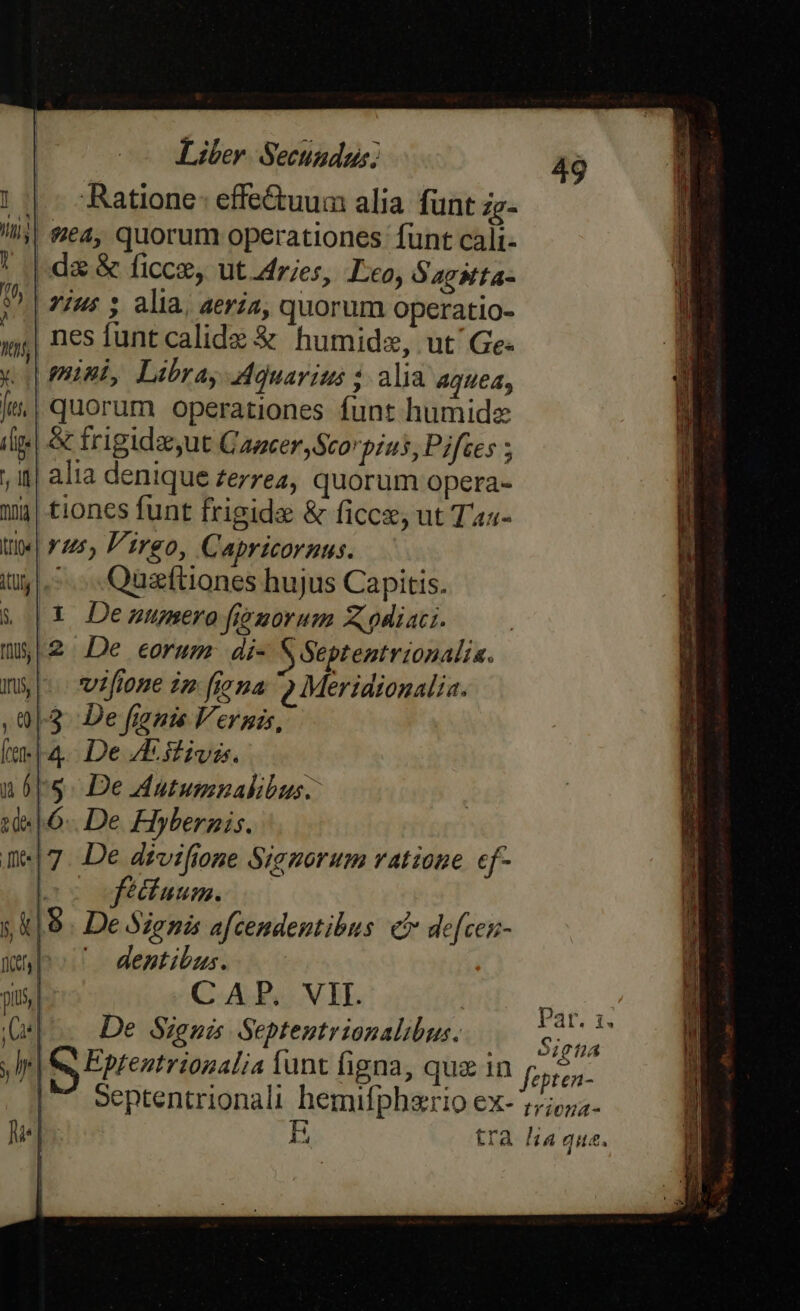 Liber Secundus. 49
Ratione effectuum alia ſunt ig-
nea, quorum operationes ſunt cali-
dæ & ſiccæ, ut Aries, Leo, Sagitta-
rius ; alia, aeria, quorum operatio-
nes ſunt calidæ & humidæ, ut Ge-
mini, Libra, Aquarius ; alia aquea,
quorum operationes ſunt humidæ
& frigidæ, ut Cancer, Scorpius, Piſces ;
alia denique terrea, quorum opera-
tiones ſunt frigidæ & ſiccæ, ut Tau-
rus, Virgo, Capricornus.
Quæſtiones hujus Capitis.
1 De numero ſignorum Zodiaci.
2 De eorum di- { Septentrionalia.
viſione in ſigna } Meridionalia.
3 De ſignis Vernis,
4. De Æstivis.
5. De Autumnalibus.
6. De Hybernis.
7. De diviſione Signorum ratione ef-
fectuum.
8. De Signis aſcendentibus & deſcen-
dentibus.
CAP. VII.
De Signis Septentrionalibus.
SEptentrionalia ſunt ſigna, quæ in
Septentrionali hemiſphærio ex-
E tra
Par. 1.
Signa
ſepten-
triona-
lia quæ.